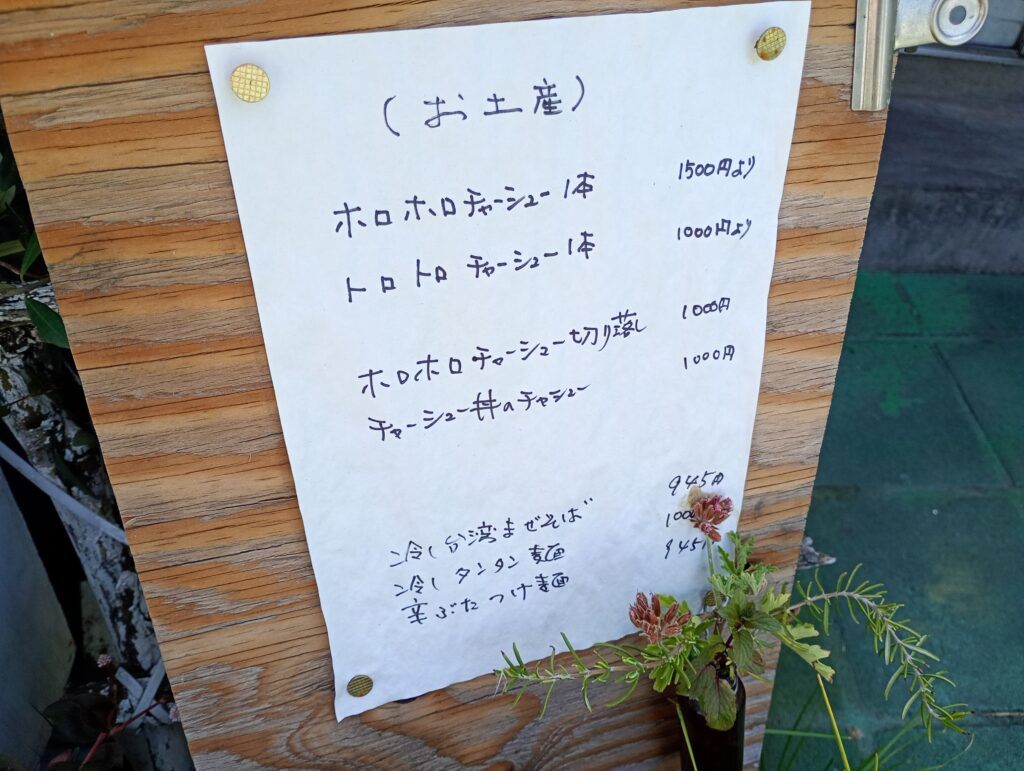 (お土産)
ホロホロチャーシュー1本 1500円より
トロトロ チャーシュー1本 1000円より
ホロホロチャーシュー切り落し 1000円
チャーシュー丼のチャシュー 1000円
冷し台湾まぜそば 945円
冷しタンタン麺
辛ぶたつけ麺